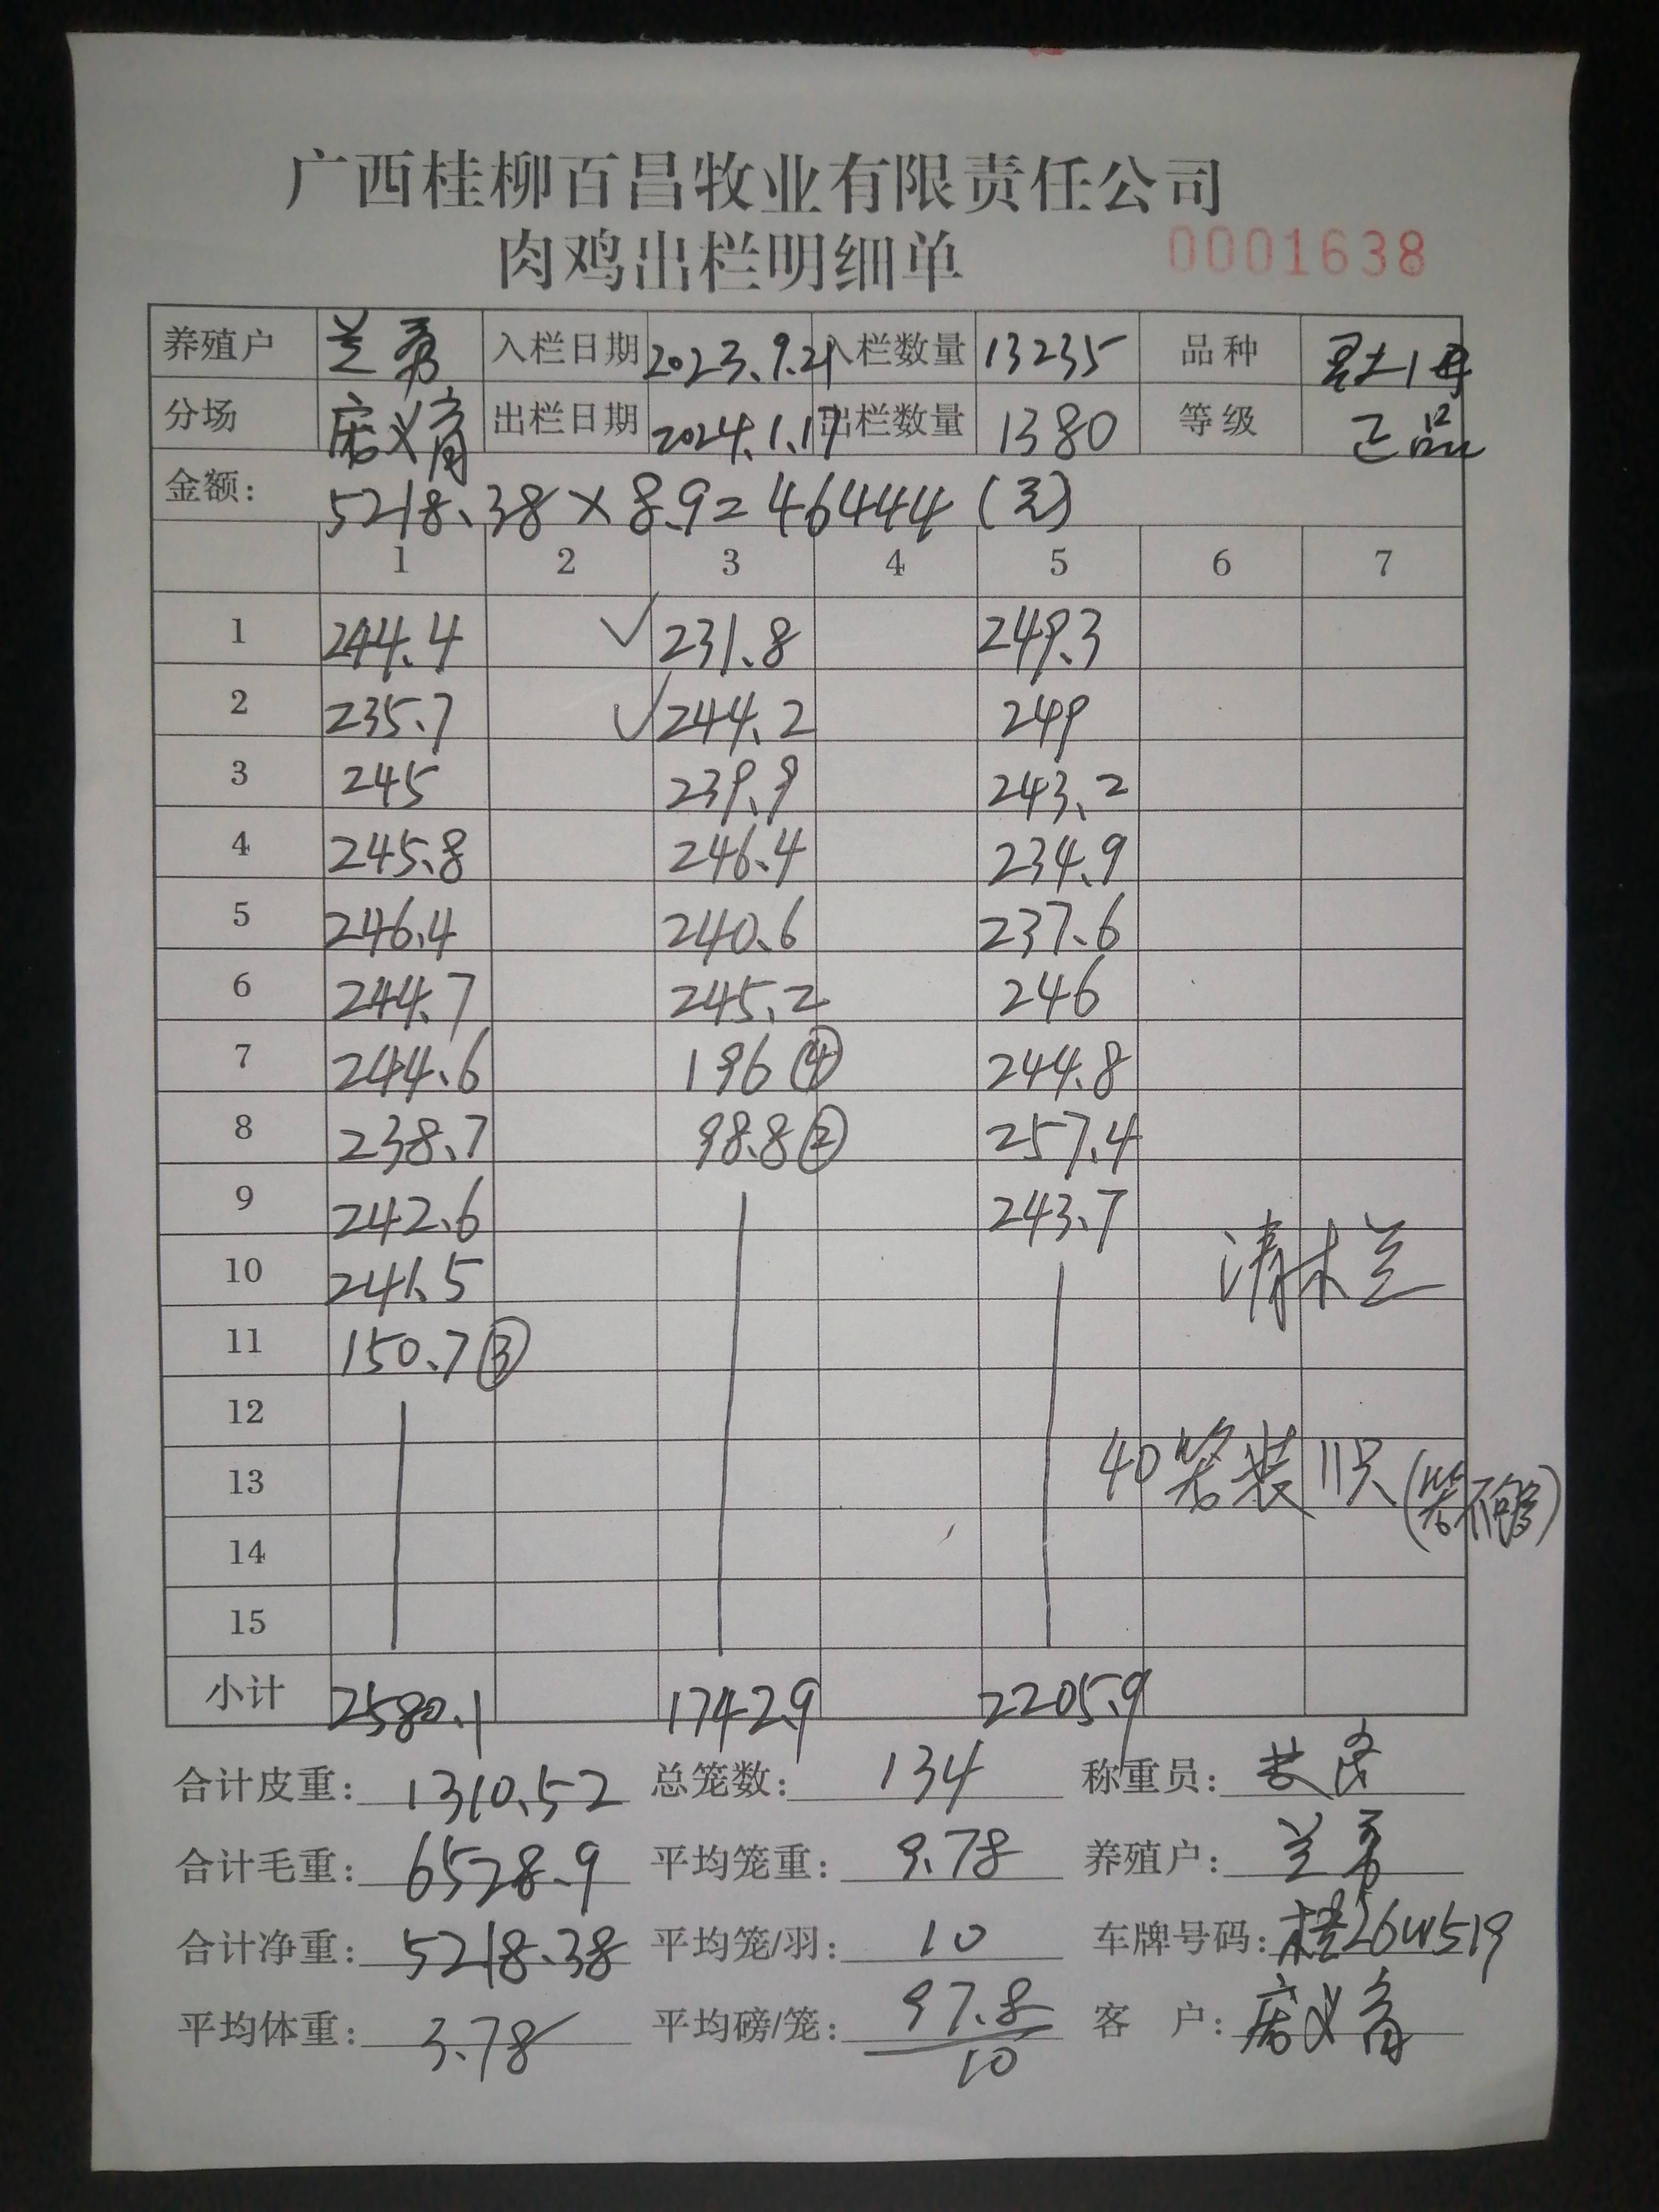 广西桂柳百昌牧业有限责任公司
肉鸡出栏明细单 0001638
养殖户 兰勇 入栏日期 2023.9.21 入栏数量 13235 品种
分场 出栏日期 2024.1.17 出栏数量 1380 等级 正品
金额: 5218.38×8.9=46444(元)
1 2 3 4 5 6 7
1 244.4 ✓ 231.8 249.3
2 235.7 ✓ 244.2 249
3 245 239.9 243.2
4 245.8 246.4 234.9
5 246.4 240.6 237.6
6 244.7 245.2 246
7 244.6 196④ 244.8
8 238.7 98.8② 257.4
9 242.6 243.7
10 241.5 清木兰
11 150.7③
12
13 40笼装11只(笼不够)
14
15
小计 2580.1 1742.9 2205.9
合计皮重: 1310.52 总笼数: 134 称重员:
合计毛重: 6528.9 平均笼重: 9.78 养殖户: 兰勇
合计净重: 5218.38 平均笼/羽: 10 车牌号码:
平均体重: 3.78 平均磅/笼: 97.8/10 客 户: